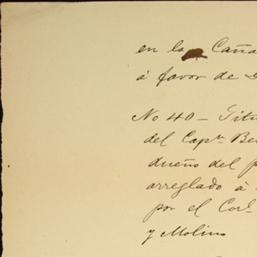 en la Caña
á favor de D
No 40 - Titu
del Capn. Be
dueño del p
arreglado á
por el Corl.
y Molino